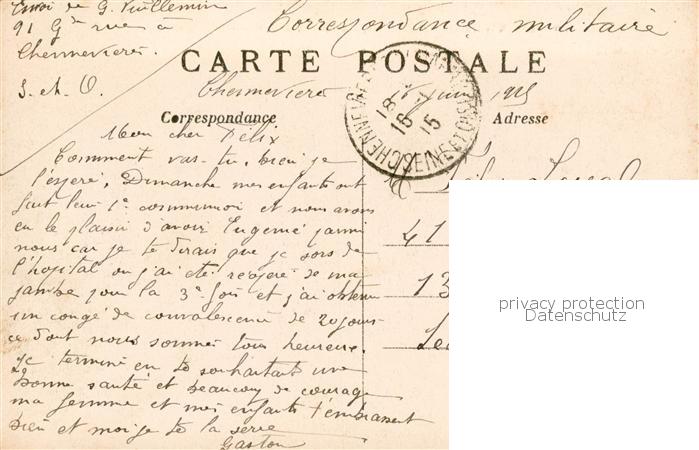 Envoi de G. Vuillemin
91 Gde rue à
Chennevières
S. et O.
Correspondance militaire
CARTE POSTALE
Chennevières 15 juin 1915
Correspondance
Adresse
CHENNEVIÈRES
SEINE ET OISE
18
16
15
Mon cher Félix
Comment vas-tu, bien je
l'espère, Dimanche mes enfants ont
fait leur 1e communion et nous avons
eu le plaisir d'avoir Eugénie parmi
nous car je te dirais que je sors de
l'hopital ou j'ai été réopéré de ma
jambe pour la 3e fois et j'ai obtenu
un congé de convalescence de 20 jours
ce dont nous sommes tous heureux.
Je termine en te souhaitant une
bonne santé et beaucoup de courage
ma femme et mes enfants t'embrassent
bien et moi je te la serre
Gaston
41
13
privacy protection
Datenschutz